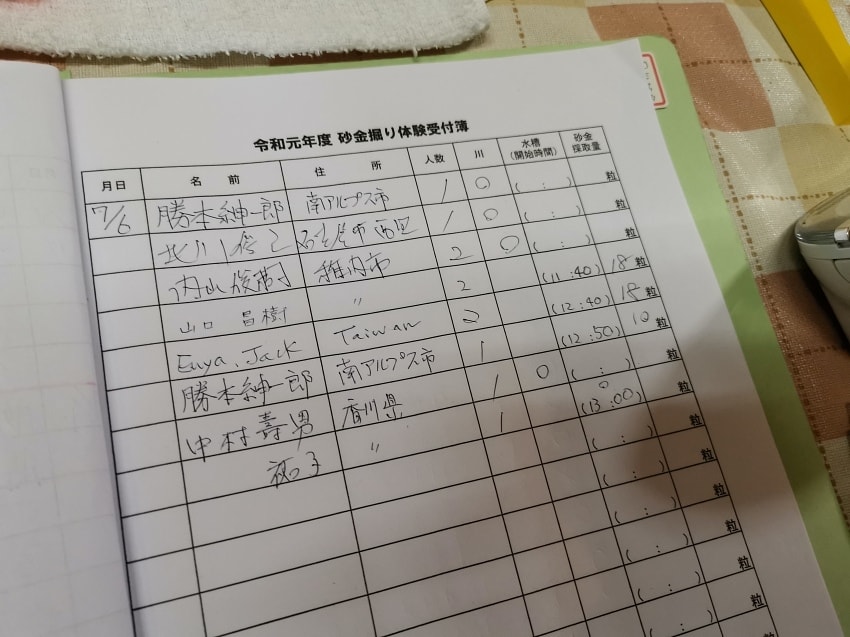 令和元年度 砂金掘り体験受付簿
月日 名前 住所 人数 川 水槽(開始時間) 砂金採取量
7/6 勝本紳一郎 南アルプス市 1 ○ ( : ) 粒
北川 市西区 1 ○ ( : ) 粒
内山俊 稚内市 2 ○ ( : ) 粒
山口 昌樹 〃 2 (11:40) 18粒
Euya, Jack Taiwan 2 (12:40) 18粒
勝本紳一郎 南アルプス市 1 (12:50) 10粒
中村寿男 香川県 1 ○ ( : ) 粒
子 〃 1 ○ (13:00) 粒
( : ) 粒
( : ) 粒
( : ) 粒
( : ) 粒
( : ) 粒